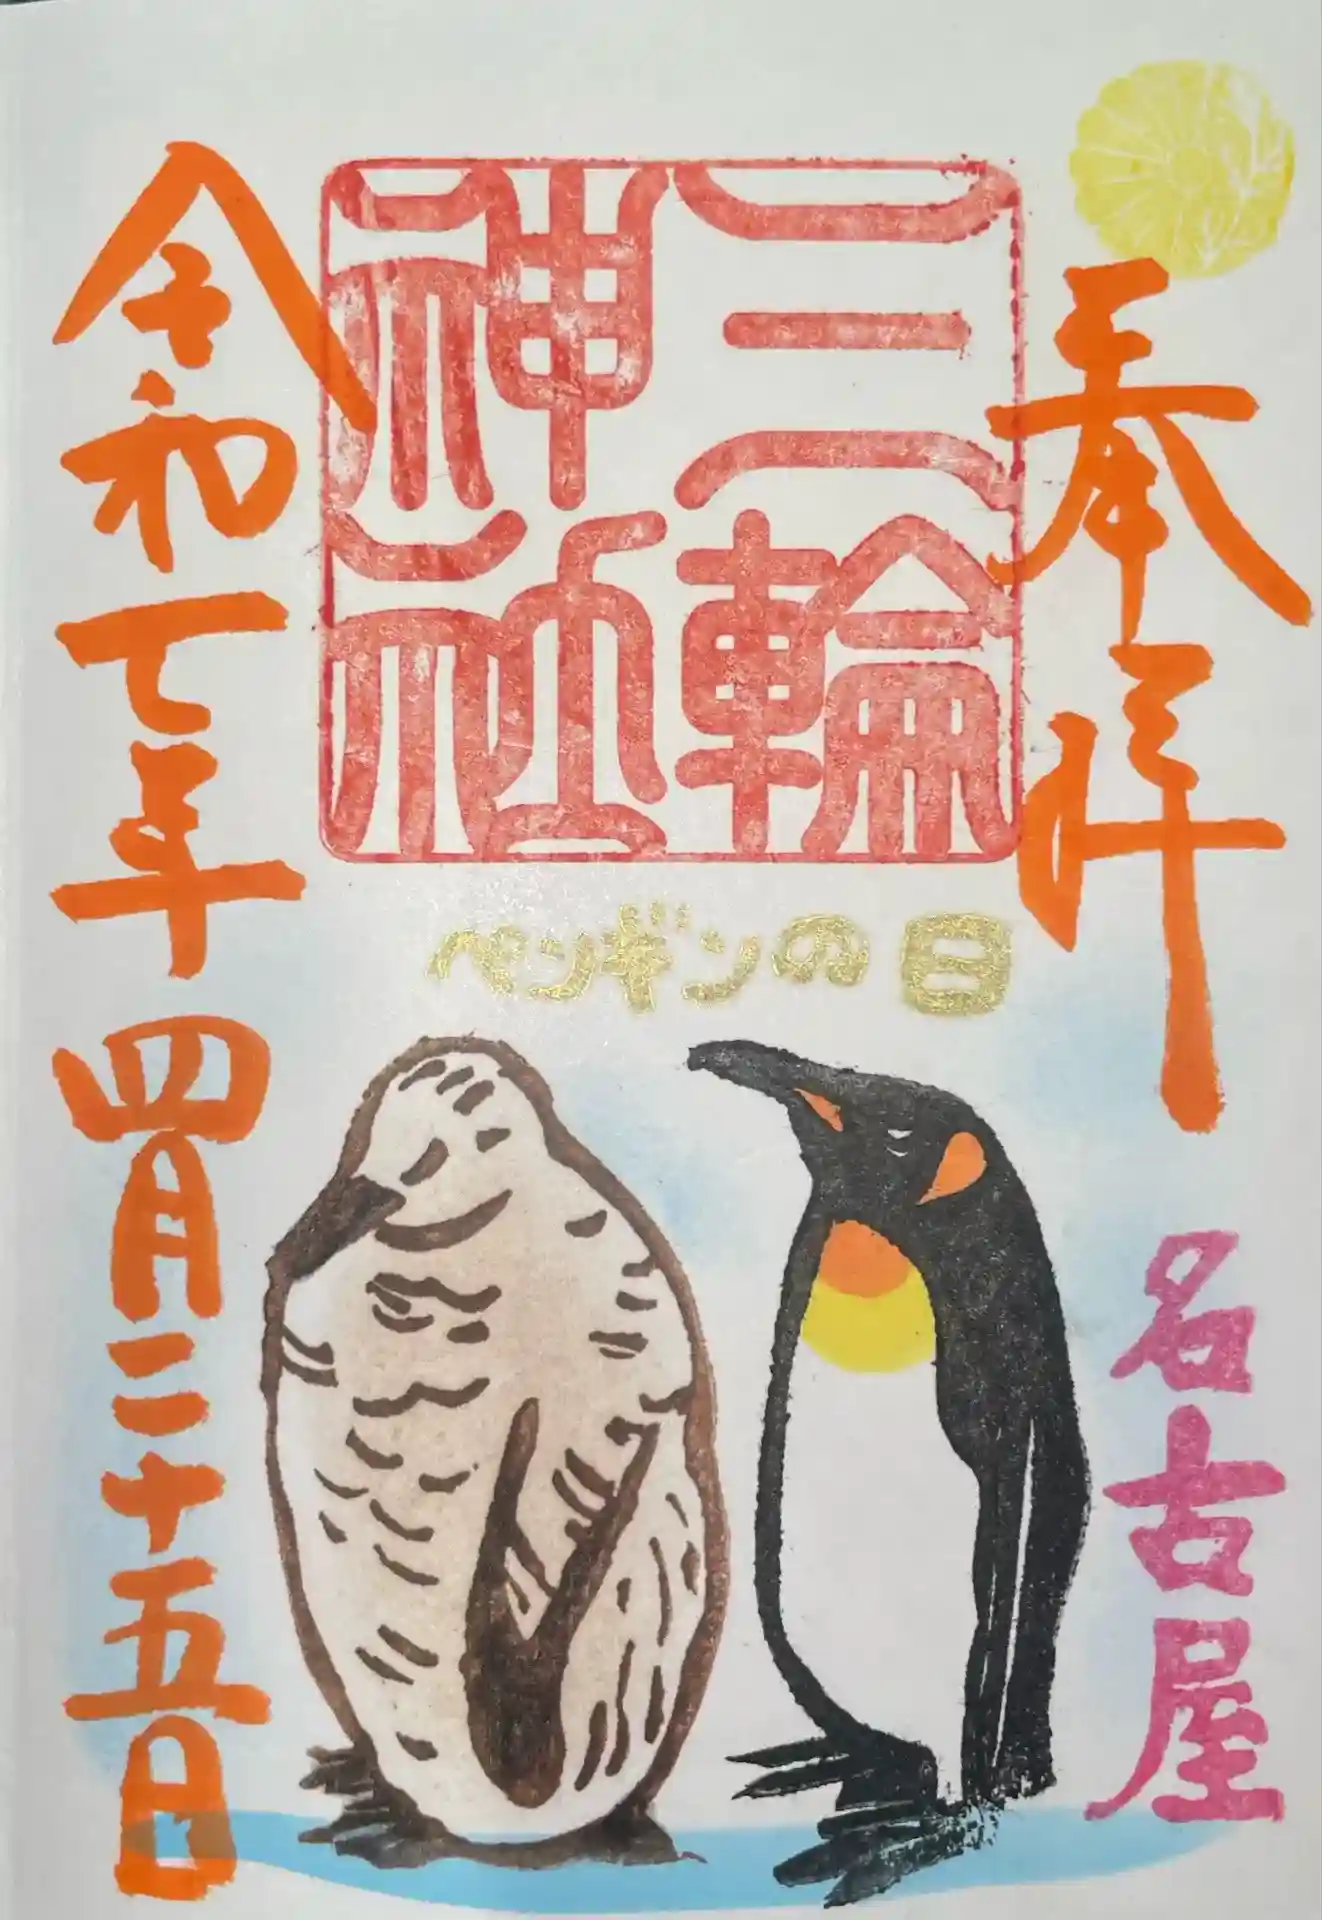 奉拝
名古屋
三輪
神社
ペンギンの日
令和七年四月二十五日